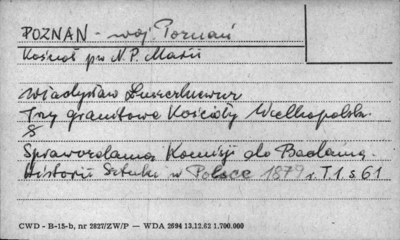 POZNAŃ - woj Poznań
Kościół pw N.P. Marii
Władysław Łuszczkiewicz
Trzy granitowe Kościoły Wielkopolskie
Sprawozdania Komisji do Badania
Historii Sztuki w Polsce 1879 r. T 1 s 61
CWD - B-15-b, nr 2827/ZW/P — WDA 2694 13.12.62 1.700.000